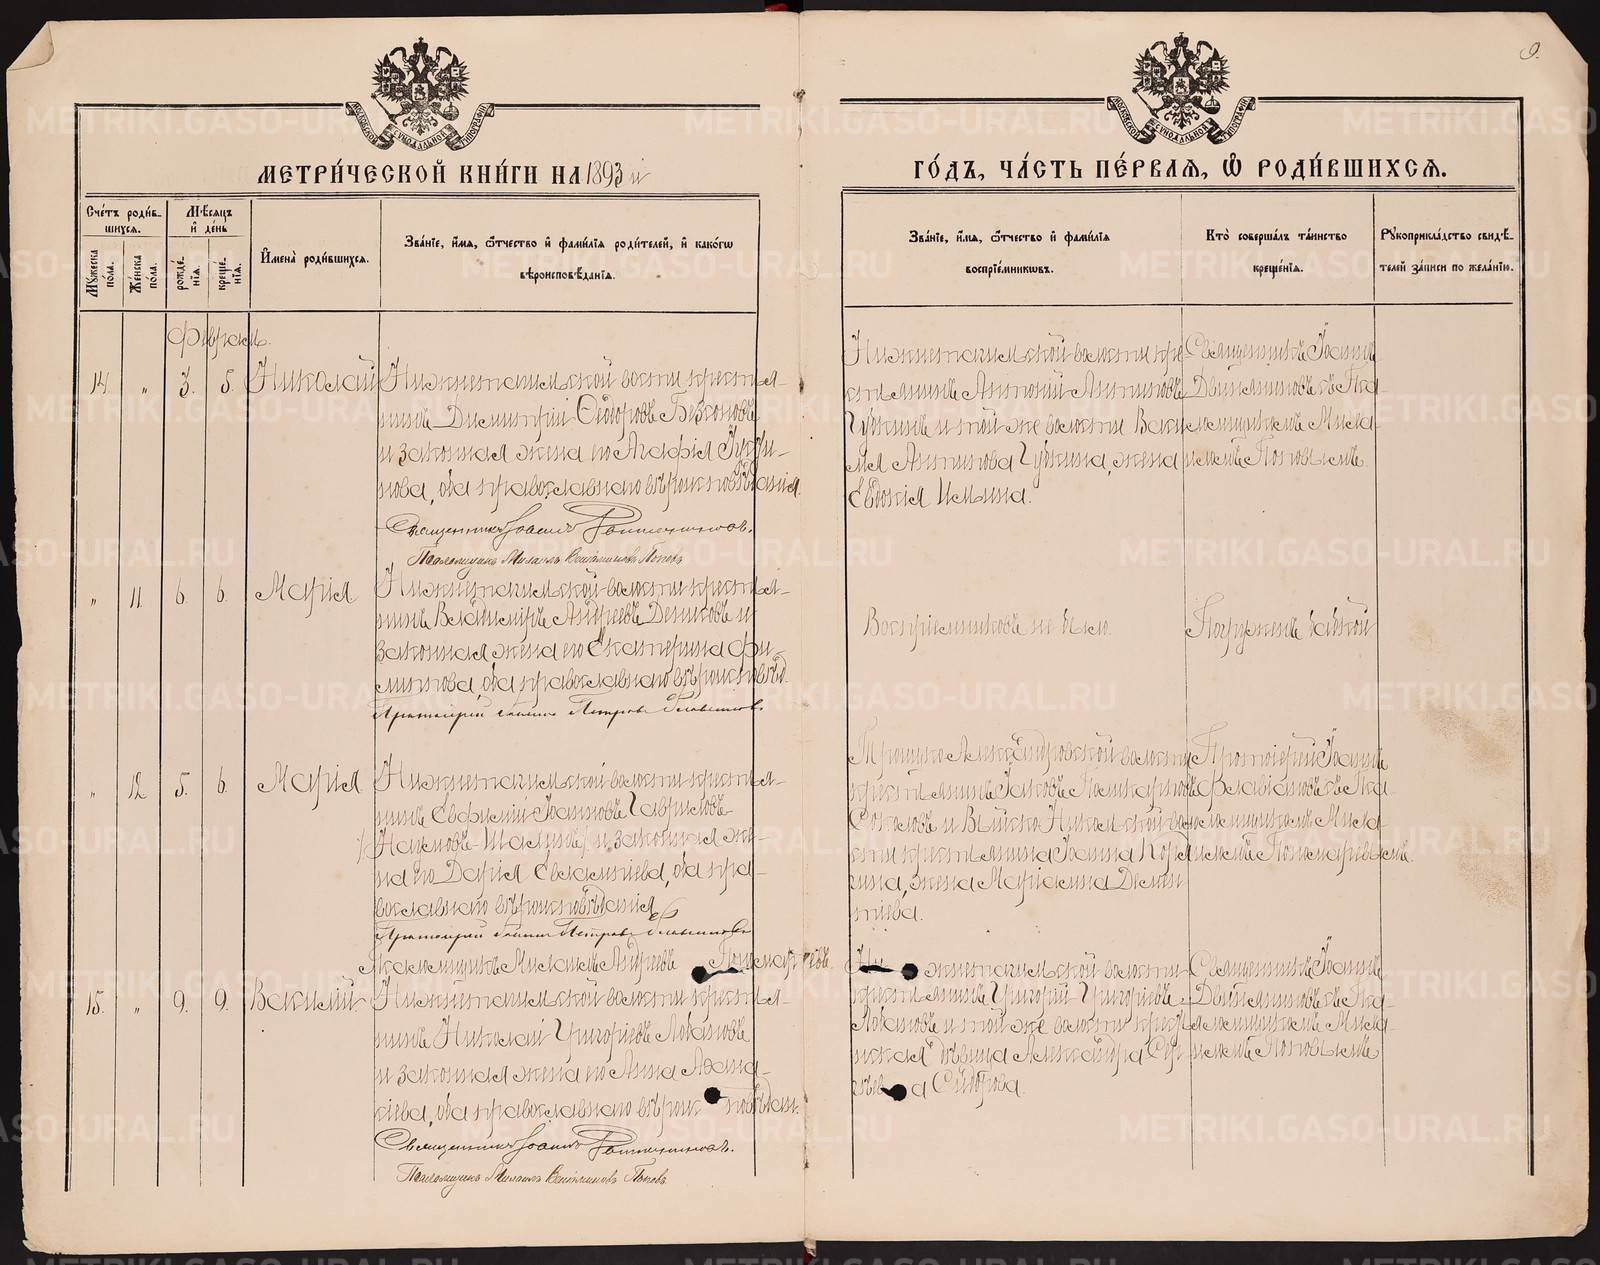 9.
МОСКОВСКОЙ СѴНОДАЛЬНОЙ ТИПОГРАФІИ
МОСКОВСКОЙ СѴНОДАЛЬНОЙ ТИПОГРАФІИ
МЕТРИ́ЧЕСКОЙ КНИ́ГИ НА 1893 й
ГО́ДЪ, ЧА́СТЬ ПЕ́РВАЯ, Ѡ РОДИ́ВШИХСЯ.
Сче́тъ роди́в-
шихся.
Мꙋ́жеска по́ла.
Же́нска по́ла.
Мѣ́сяцъ
и҆ де́нь
рожде́-
нїѧ.
креще́-
нїѧ.
И҆мена̀ роди́вшихся.
Зва́нїе, и҆́мя, ѻ҆́тчество и҆ фами́лїя роди́телей, и҆ како́гѡ
вѣроисповѣ́данїя.
Зва́нїе, и҆́мя, ѻ҆́тчество и҆ фами́лїя
воспрїе́мниковъ.
Кто̀ соверша́лъ та́инство
креще́нїя.
Рꙋкоприкла́дство свидѣ́-
телей за́писи по жела́нїю.
Февраль.
14. „ 3. 5. Николай
Нижнетагильской волости крестья-
нинъ Димитрій Ѳедоровъ
и законная жена его Агафія
нова, оба православнаго вѣроисповѣданія.
Священникъ Іоаннъ
Псаломщикъ Михаилъ Веніаминовъ Поповъ
Нижнетагильской волости кре-
стьянинъ Антоній Антиповъ
Губкинъ и той же волости Васи-
лія Антипова Губкина, жена
Евдокія Ильина.
Священникъ Іоаннъ
съ Пса-
ломщикомъ Миха-
иломъ Поповымъ.
„ 11. 6. 6. Марія
Нижнетагильской волости крестья-
нинъ Владиміръ Андреевъ Деньговъ и
законная жена его Екатерина Фи-
липпова, оба православнаго вѣроисповѣд.
Протоіерей Іоаннъ Петровъ Флавіановъ.
Воспріемниковъ не было.
Погружена бабкой
„ 12. 5. 6. Марія
Нижнетагильской волости крестья-
нинъ Евфимій Іоанновъ Гавриловъ
и законная же-
на его Дарія Евлампіева, оба пра-
вославнаго вѣроисповѣданія.
Протоіерей Іоаннъ Петровъ Флавіановъ
Псаломщикъ Михаилъ Андреевъ Пономаревъ.
Троицко-Александровской волости
крестьянинъ Іаковъ
Соколовъ и Выйско-Никольской воло-
сти крестьянина Іоанна
жена Маріамна Демен-
тіева.
Протоіерей Іоаннъ
Флавіановъ съ Пса-
ломщикомъ Миха-
иломъ Пономаревымъ.
15. „ 9. 9. Василій
Нижнетагильской волости крестья-
нинъ Николай Григоріевъ Лобановъ
и законная жена его Анна Аѳана-
сіева, оба православнаго вѣроисповѣдан.
Священникъ Іоаннъ
Псаломщикъ Михаилъ Веніаминовъ Поповъ.
Нижнетагильской волости
крестьянинъ Григорій Григоріевъ
Лобановъ и той же волости крестья-
нская дѣвица Александра Сер-
гѣева Сидорова.
Священникъ Іоаннъ
съ Пса-
ломщикомъ Миха-
иломъ Поповымъ
METRIKI.GASO-URAL.RU